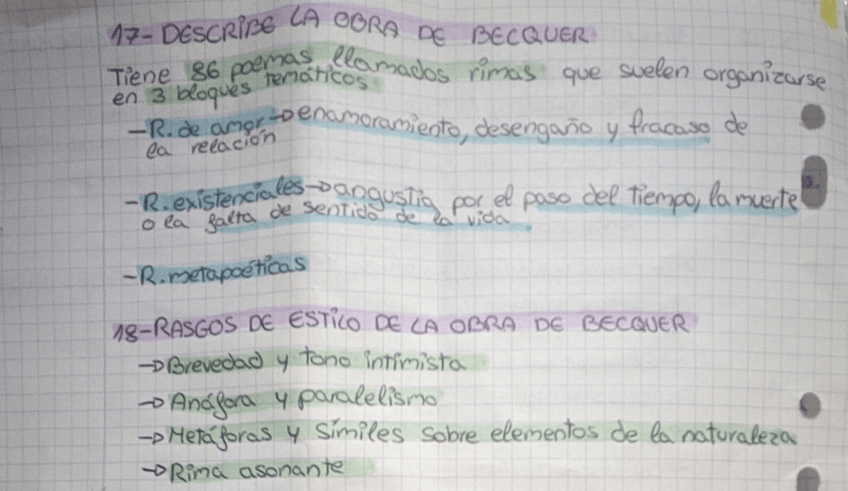 17-DESCRIBE LA OBRA DE BECQUER
Tiene 86 poemas llamados rimas que suelen organizarse
en 3 bloques temáticos
-R. de amor→enamoramiento, desengaño y fracaso de
la relación
-R. existenciales→angustia por el paso del tiempo, la muerte
o la falta de sentido de la vida
-R. metapoéticas
18-RASGOS DE ESTILO DE LA OBRA DE BECQUER
→Brevedad y tono intimista
→Anáfora y paralelismo
→Metáforas y símiles sobre elementos de la naturaleza
→Rima asonante